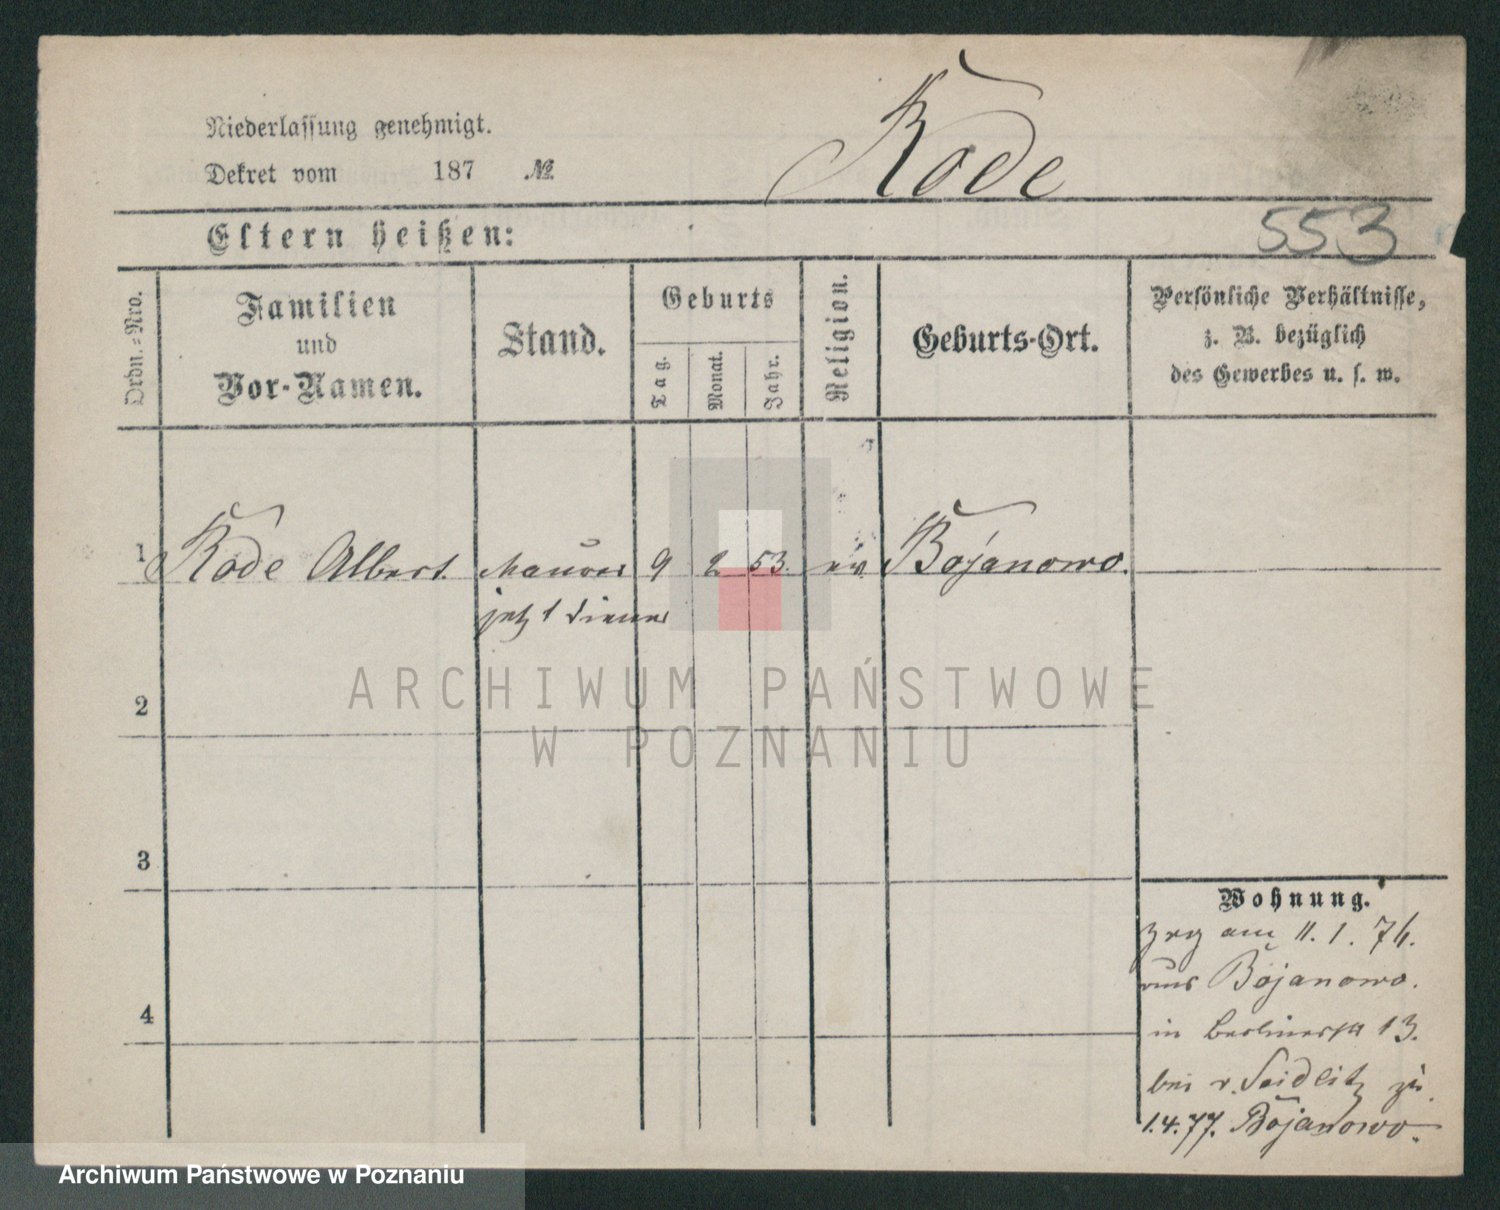 Niederlassung genehmigt.
Dekret vom 187 №
Rode
Eltern heißen:
553
Ordn.-Nro.
Familien
und
Vor-Namen.
Stand.
Geburts
Tag.
Monat.
Jahr.
Religion.
Geburts-Ort.
Persönliche Verhältnisse,
z. B. bezüglich
des Gewerbes u. s. w.
1 Rode Albert. Maurer 9 2 53. ev. Bojanowo.
jetzt Diener
2
3
4
Wohnung.
zug am 11. 1. 76.
aus Bojanowo.
in Berlinerstr 13.
bei v. Seidlitz zu
1.4.77. Bojanowo.
ARCHIWUM PAŃSTWOWE
W POZNANIU
Archiwum Państwowe w Poznaniu